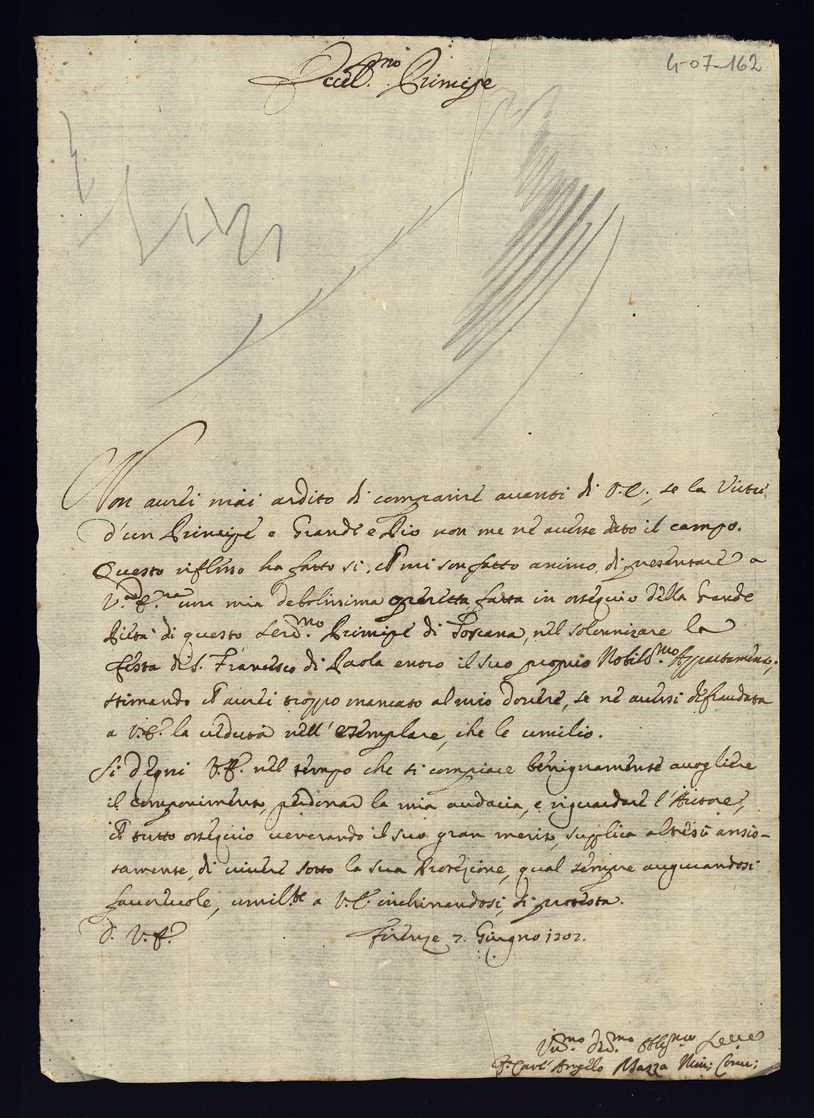 4-07-162
Eccel.mo Principe
Non aurei mai ardito di comparire auanti di V.E., se la Virtù
d'un Principe e Grande e Pio non me ne auesse dato il campo.
Questo riflesso ha fatto si, ch mi son fatto animo di presentare a
V.ra E.za una mia debolissima operetta fatta in ossequio della Grande
Pietà di questo Ser.mo Principe di Toscana, nel solennizare la
festa di S. Francesco di Paola entro il suo proprio Nobilis.mo Appartamento;
stimando ch aurei troppo mancato al mio douere, se ne auessi defraudata
a V.E. la ueduta nell' esemplare, che le umilio.
Si degni V.E. nel tempo che si compiace benignamente accogliere
il componimento, perdonar la mia audacia, e riguardare l'Autore,
ch tutto ossequio uenerando il suo gran merito, supplica altresì ansio-
samente, di uiuere sotto la sua Protezione, qual sempre augurandosi
fauoreuole, umil.te a V.E. inchinandosi, si protesta.
D. V.E. Firenze 7. Giugno 1707.
Um.mo Deu.mo Obblig.mo Seruo
F. Carl' Angelo Mazza Min: Conu: